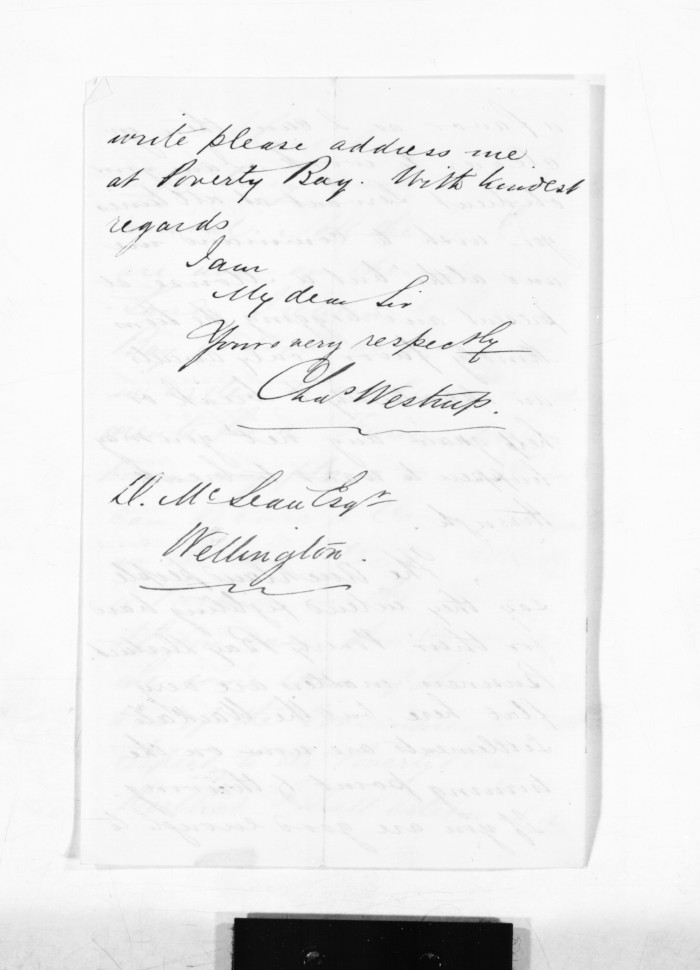 write please address me
at Poverty Bay. With kindest
regards
I am
My dear Sir
Yours very respectly
Chas Westrup.
D. McLean Esqr
Wellington.